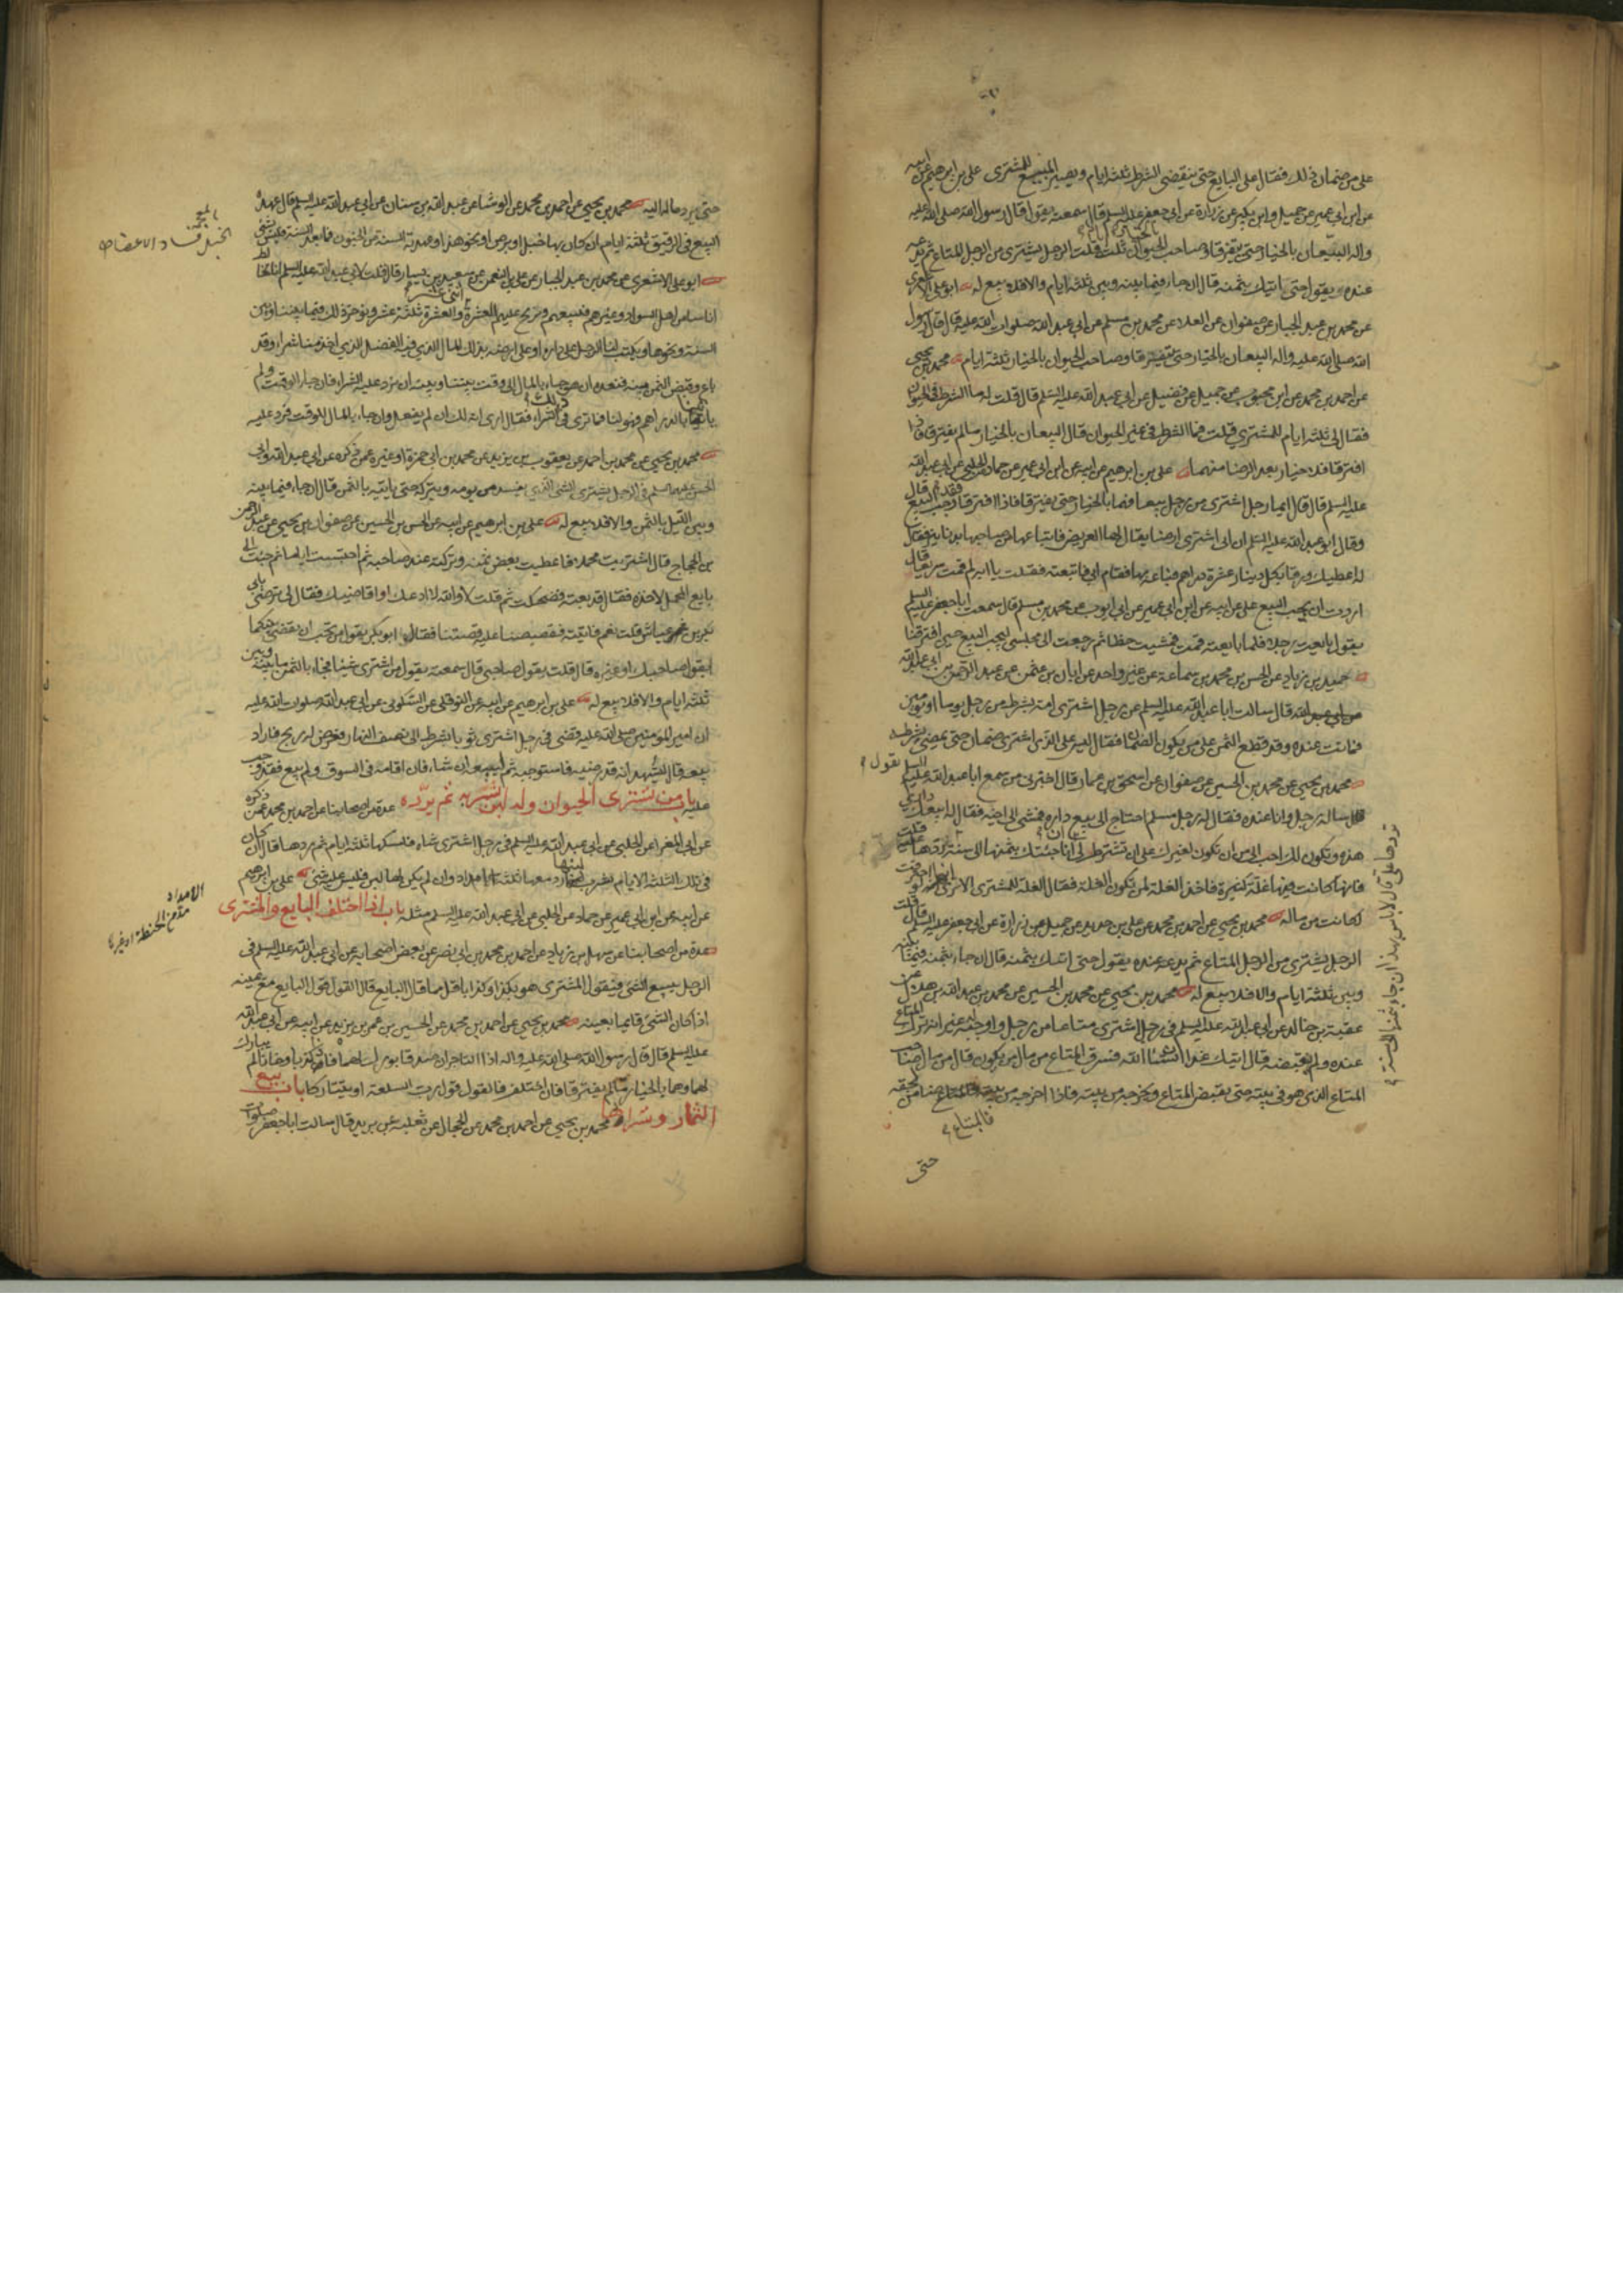 على من ضمان ذلك فقال على البايع حتى ينقضى الشرط ثلثة ايام ويصير المبيع للمشترى على بن ابرهيم عن ابيه
عن ابن ابى عمير عن جميل وابن بكير عن زرارة عن ابى جعفر عليه السلم قال سمعته يقول قال رسول الله صلى الله عليه
واله البيعان بالخيار حتى يفترقا وصاحب الحيوان ثلث قلت الرجل يشترى من الرجل المتاع ثم يدعه
عنده يقول حتى اتيك بثمنه قال ان جاء فيما بينه وبين ثلثة ايام والا فلا بيع له ابو على الاشعرى
عن محمد بن عبد الجبار عن صفوان عن العلا عن محمد بن مسلم عن ابى عبد الله صلوات الله عليه قال قال رسول
الله صلى الله عليه واله البيعان بالخيار حتى يفترقا وصاحب الحيوان بالخيار ثلثة ايام محمد بن يحيى
عن احمد بن محمد عن ابن محبوب عن جميل عن فضيل عن ابى عبد الله عليه السلم قال قلت له ما الشرط فى الحيوان
فقال الى ثلثة ايام للمشترى قلت فما الشرط فى غير الحيوان قال البيعان بالخيار ما لم يفترقا فاذا
افترقا فلا خيار بعد الرضا منهما على بن ابرهيم عن ابيه عن ابن ابى عمير عن حماد عن الحلبى عن ابى عبد الله
عليه السلم قال قال ايما رجل اشترى من رجل بيعا فهما بالخيار حتى يفترقا فاذا افترقا وجب البيع قال
وقال ابو عبد الله عليه السلم ان ابى اشترى ارضا يقال لها العريض فابتاعها من صاحبها بدنانير فقال
له اعطيك ورقا بكل دينار عشرة دراهم فباعه بها فقام ابى فاتبعته فقلت يا ابه لم قمت سريعا قال
اردت ان يجب البيع على عن ابيه عن ابن ابى عمير عن ابى ايوب عن محمد بن مسلم قال سمعت ابا جعفر عليه السلم
يقول بايعت رجلا فلما بايعته قمت فمشيت خطا ثم رجعت الى مجلسى ليجب البيع حين افترقنا
حميد بن زياد عن الحسن بن محمد بن سماعة عن غير واحد عن ابان بن عثمن عن عبد الرحمن بن ابى عبد الله
قال سالت ابا عبد الله عليه السلم عن رجل اشترى امة بشرط من رجل يوما او يومين
فماتت عنده وقد قطع الثمن على من يكون الضمان فقال ليس على الذى اشترى ضمان حتى يمضى بشرطه
محمد بن يحيى عن محمد بن الحسين عن صفوان عن اسحق بن عمار قال اخبرنى من سمع ابا عبد الله عليه السلم يقول
ساله رجل وانا عنده فقال له رجل مسلم احتاج الى بيع داره فمشى الى اخيه فقال له ابيعك دارى
هذه وتكون لك احب الى من ان تكون لغيرك على ان تشترط لى انى اذا جئتك بثمنها الى سنة تردها على
تردها على قال لا باس بهذا ان جاء بثمنها الى سنة
فانها كانت فيها غلة كثيرة فاخذ الغلة لمن تكون الغلة فقال الغلة للمشترى الا ترى انها لو احترقت
لكانت من ماله محمد بن يحيى عن احمد بن محمد عن على بن حديد عن جميل عن زرارة عن ابى جعفر عليه السلم قال قلت
الرجل يشترى من الرجل المتاع ثم يدعه عنده يقول حتى اتيك بثمنه قال ان جاء بثمنه فيما بينه
وبين ثلثة ايام والا فلا بيع له محمد بن يحيى عن محمد بن الحسين عن محمد بن عبد الله بن هلال عن
عقبة بن خالد عن ابى عبد الله عليه السلم فى رجل اشترى متاعا من رجل واوجبه غير انه ترك المتاع
عنده ولم يقبضه قال اتيك غدا انشاء الله فسرق المتاع من مال من يكون قال من مال صاحب
المتاع الذى هو فى بيته حتى يقبض المتاع ويخرجه من بيته فاذا اخرجه من بيته فالمبتاع ضامن لحقه
حتى
حتى يرد ماله اليه محمد بن يحيى عن احمد بن محمد عن الوشا عن عبد الله بن سنان عن ابى عبد الله عليه السلم قال عهدة
البيع فى الرقيق ثلثة ايام ان كان بها خبل او برص او نحو هذا وعهدته السنة من الجنون فما بعد السنة فليس بشى
الخبل فساد الاعضاء
ابو على الاشعرى عن محمد بن عبد الجبار عن على بن النعمن عن سعيد بن يسار قال قلت لابى عبد الله عليه السلم انا نخالط
اناسا من اهل السواد وغيرهم فنبيعهم ونربح عليهم العشرة اثنى عشر والعشرة ثلثة عشر ونؤخر ذلك فيما بيننا وبين
السنة ونحوها ويكتب لنا الرجل على داره او على ارضه بذلك المال الذى فيه الفضل الذى اخذ منا شراء وقد
باع وقبض الثمن منه فنعده ان هو جاء بالمال الى وقت بيننا وبينه ان نرد عليه الشراء فان جاء الوقت ولم
ياتنا بالدراهم فهو لنا فما ترى فى ذلك الشراء فقال ارى انه لك ان لم يفعل وان جاء بالمال للوقت فرد عليه
محمد بن يحيى عن محمد بن احمد عن يعقوب بن يزيد عن محمد بن ابى حمزة او غيره عمن ذكره عن ابى عبد الله وابى
الحسن عليهما السلم فى الرجل يشترى الشى الذى يفسد من يومه ويتركه حتى ياتيه بالثمن قال ان جاء فيما بينه
وبين الليل بالثمن والا فلا بيع له على بن ابرهيم عن ابيه عن الحسن بن الحسين عن صفوان بن يحيى عن عبد الرحمن
بن الحجاج قال اشتريت محملا فاعطيت بعض ثمنه وتركته عند صاحبه ثم احتبست اياما ثم جئت الى
بايع المحمل لاخذه فقال قد بعته فضحكت ثم قلت لا والله لا ادعك او اقاضيك فقال لى ترضى بابى
بكر بن عياش قلت نعم فاتيته فقصصنا عليه قصتنا فقال ابو بكر بقول من تحب ان نقضى بينكما
ابقول صاحبك او غيره قال قلت بقول صاحبى قال سمعته يقول من اشترى شيئا فجاء بالثمن ما بينه وبين
ثلثة ايام والا فلا بيع له على بن ابرهيم عن ابيه عن النوفلى عن السكونى عن ابى عبد الله صلوات الله عليه
ان امير المومنين صلى الله عليه قضى فى رجل اشترى ثوبا بشرط الى نصف النهار فعرض له ربح فاراد
بيعه قال ليشهد انه قد رضيه فاستوجبه ثم ليبعه ان شاء فان اقامه فى السوق ولم يبع فقد وجب
عليه باب من يشترى الحيوان وله لبن يشربه ثم يرده عدة من اصحابنا عن احمد بن محمد عمن ذكره
عن ابى المغرا عن الحلبى عن ابى عبد الله عليه السلم فى رجل اشترى شاة فامسكها ثلثة ايام ثم ردها قال ان كان
فى تلك الثلثة الايام يشرب لبنها رد معها ثلثة امداد وان لم يكن لها لبن فليس عليه شى على بن ابرهيم
الامداد من الحنطة او غيرها
عن ابيه عن ابن ابى عمير عن حماد عن الحلبى عن ابى عبد الله عليه السلم مثله باب اذا اختلف البايع والمشترى
عدة من اصحابنا عن سهل بن زياد عن احمد بن محمد بن ابى نصر عن بعض اصحابه عن ابى عبد الله عليه السلم فى
الرجل يبيع الشى فيقول المشترى هو بكذا وكذا باقل مما قال البايع قال القول قول البايع مع يمينه
اذا كان الشى قايما بعينه محمد بن يحيى عن احمد بن محمد عن الحسين بن عمر بن يزيد عن ابيه عن ابى عبد الله
عليه السلم قال قال رسول الله صلى الله عليه واله اذا التاجران صدقا بورك لهما فاذا كذبا وخانا لم يبارك
لهما وهما بالخيار ما لم يفترقا فان اختلفا فالقول قول رب السلعة او يتتاركا باب بيع
الثمار وشراها محمد بن يحيى عن احمد بن محمد عن الحجال عن ثعلبة عن بريد قال سالت ابا جعفر صلوات